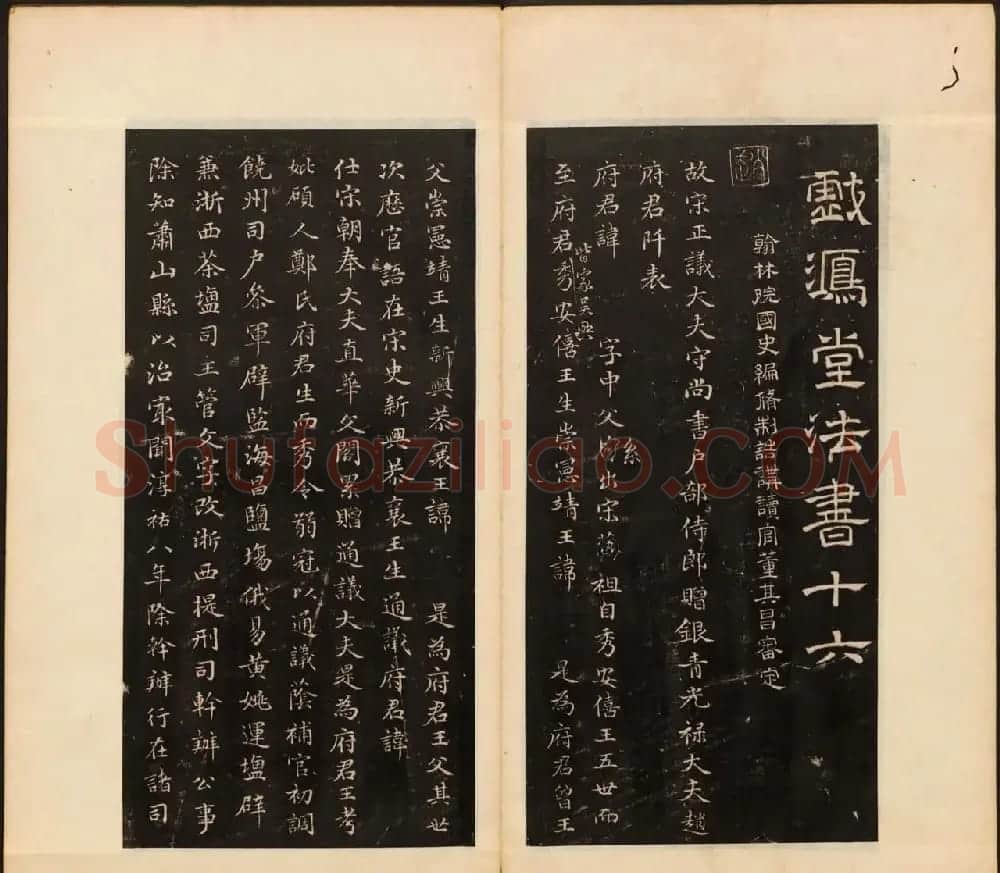 戲鴻堂法書十六
翰林院國史編脩制誥講讀官董其昌審定
故宋正議大夫守尚書户部侍郎贈銀青光禄大夫趙
府君阡表
府君諱 字中父係出宋藝祖自秀安僖王五世而
皆家吴興
至府君秀安僖王生崇憲靖王諱 是為府君曾王
父崇憲靖王生新興恭襄王諱 是為府君王父其世
次歷官語在宋史新興恭襄王生通議府君諱
仕宋朝奉大夫直華文閣累贈通議大夫是為府君王考
妣碩人鄭氏府君生而秀令弱冠以通議蔭補官初調
饒州司户參軍辟監海昌鹽場俄易黄姚運鹽辟
兼浙西茶鹽司主管文字改浙西提刑司幹辦公事
除知蕭山縣以治㝡聞淳祐八年除幹辦行在諸司
Shufaziliao.COM